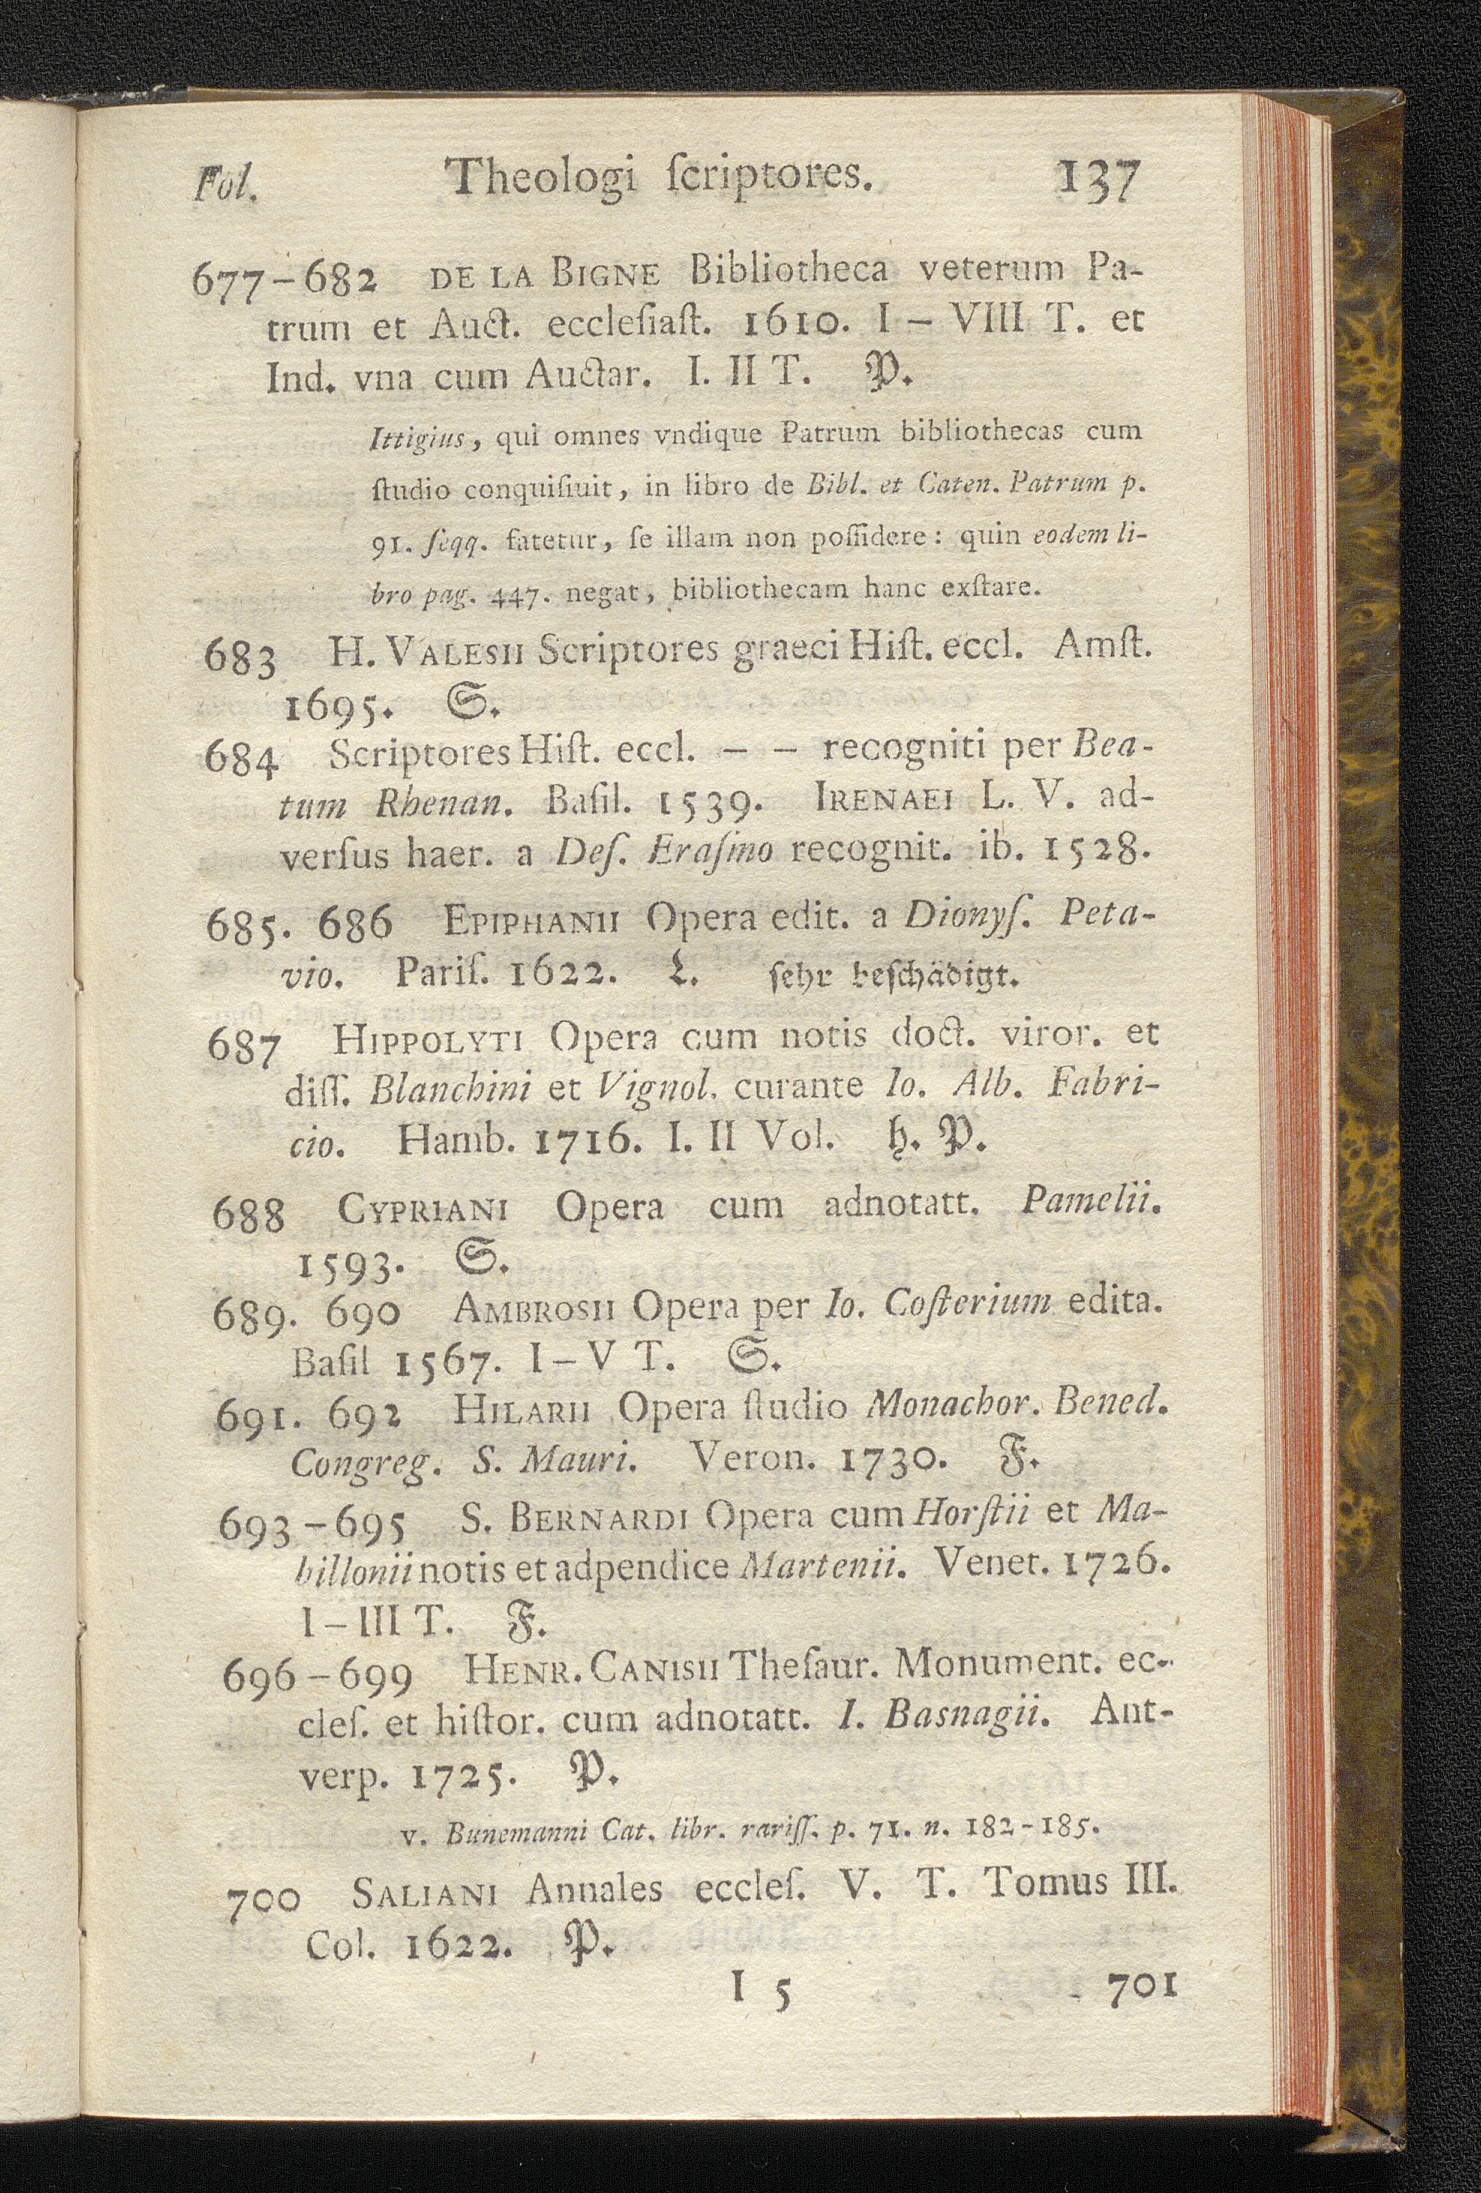 Fol. Theologi ſcriptores. 137
677–682 DE LA BIGNE Bibliotheca veterum Pa-
trum et Auct. eccleſiaſt. 1610. I – VIII T. et
Ind. vna cum Auctar. I. II T. P.
Ittigius, qui omnes vndique Patrum bibliothecas cum
ſtudio conquiſiuit, in libro de Bibl. et Caten. Patrum p.
91. ſeqq. fatetur, ſe illam non poſſidere: quin eodem li-
bro pag. 447. negat, bibliothecam hanc exſtare.
683 H. VALESII Scriptores graeci Hiſt. eccl. Amſt.
1695. S.
684 Scriptores Hiſt. eccl. – – recogniti per Bea-
tum Rhenan. Baſil. 1539. IRENAEI L. V. ad-
verſus haer. a Deſ. Eraſmo recognit. ib. 1528.
685. 686 EPIPHANII Opera edit. a Dionyſ. Peta-
vio. Pariſ. 1622. L. ſehr beſchädigt.
687 HIPPOLYTI Opera cum notis doct. viror. et
diſſ. Blanchini et Vignol. curante Io. Alb. Fabri-
cio. Hamb. 1716. I. II Vol. h. P.
688 CYPRIANI Opera cum adnotatt. Pamelii.
1593. S.
689. 690 AMBROSII Opera per Io. Coſterium edita.
Baſil 1567. I – V T. S.
691. 692 HILARII Opera ſtudio Monachor. Bened.
Congreg. S. Mauri. Veron. 1730. F.
693–695 S. BERNARDI Opera cum Horſtii et Ma-
billonii notis et adpendice Martenii. Venet. 1726.
I – III T. F.
696–699 HENR. CANISII Theſaur. Monument. ec-
cleſ. et hiſtor. cum adnotatt. I. Basnagii. Ant-
verp. 1725. P.
v. Bunemanni Cat. libr. rariſſ. p. 71. n. 182-185.
700 SALIANI Annales eccleſ. V. T. Tomus III.
Col. 1622. P.
I 5 701